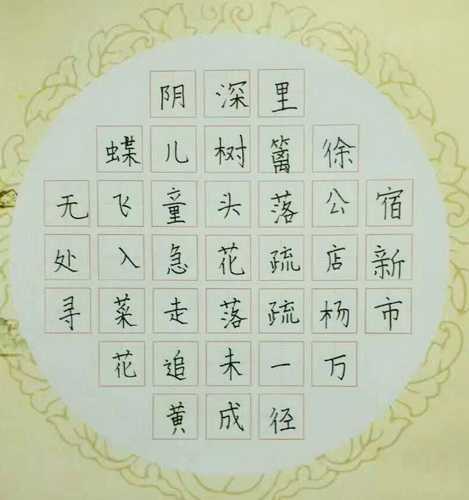 宿新市
徐公店杨万
里篱落疏疏一径
深树头花落未成
阴儿童急走追黄
蝶飞入菜花
无处寻